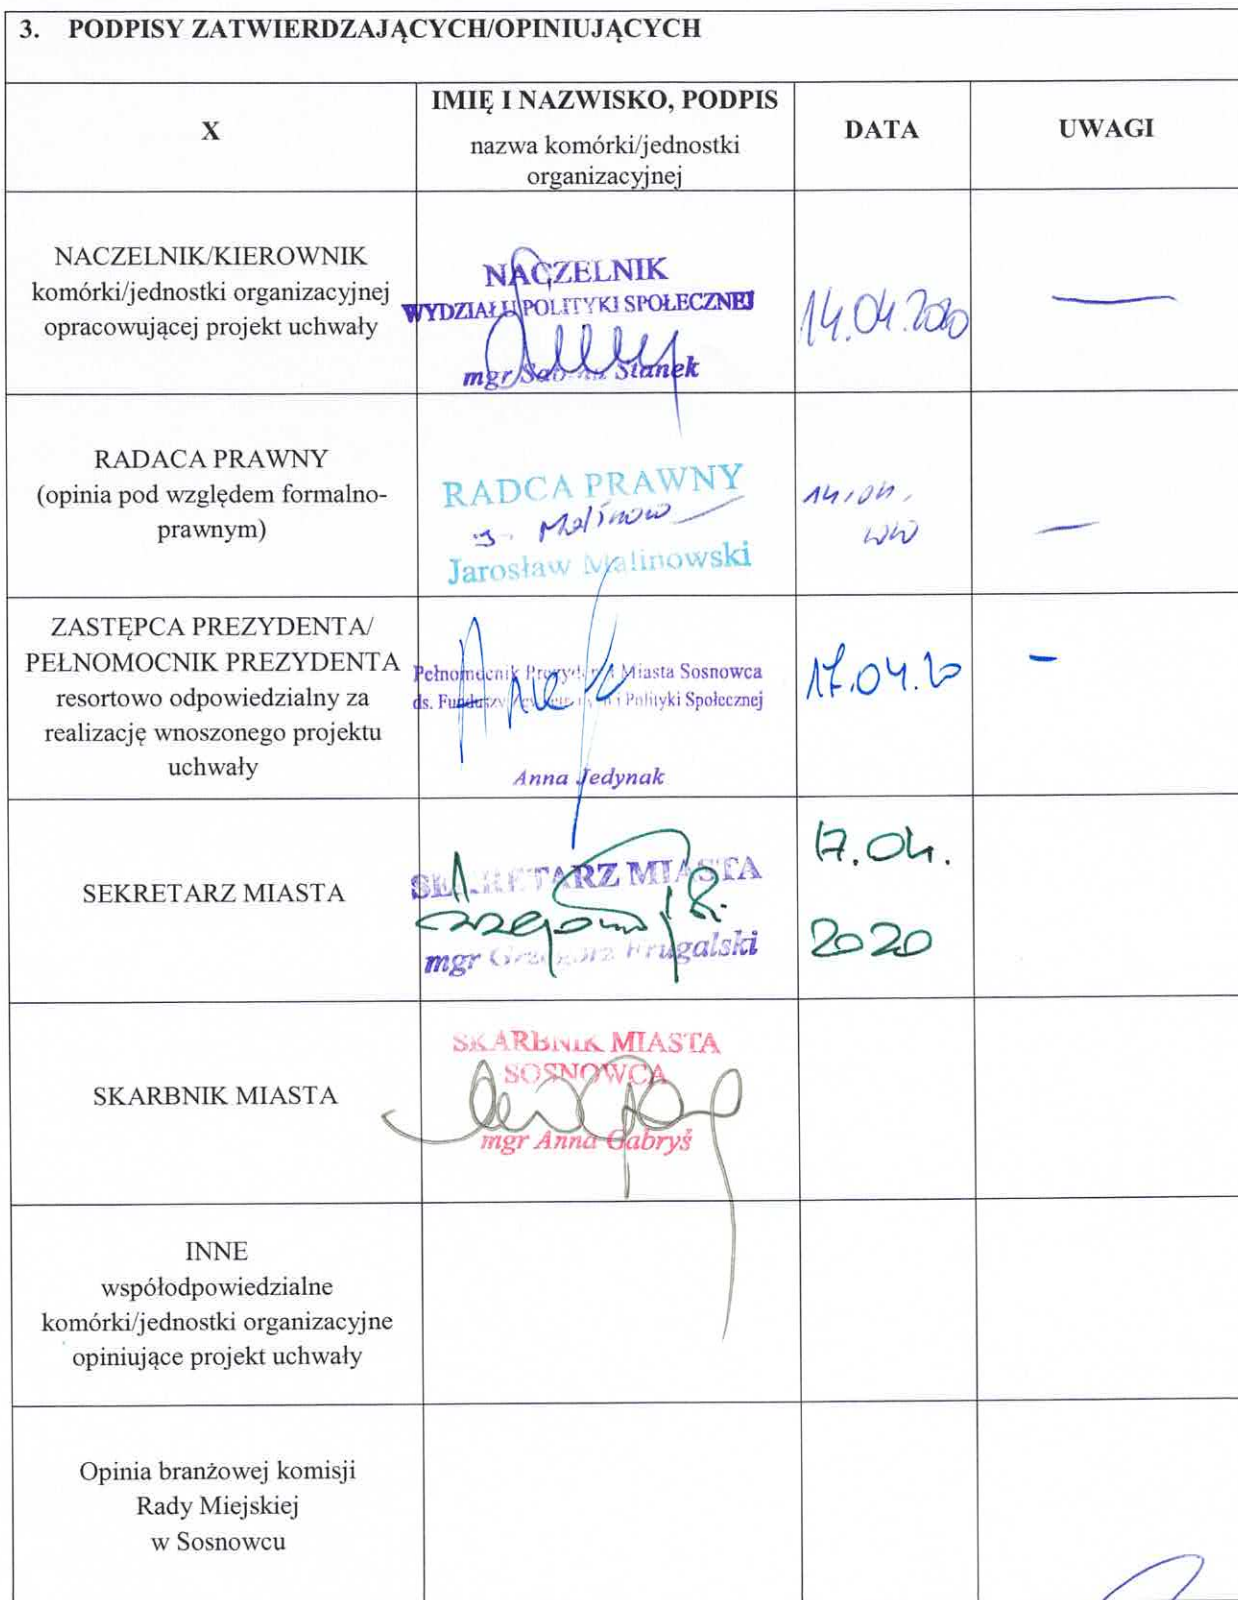 3. PODPISY ZATWIERDZAJĄCYCH/OPINIUJĄCYCH
X
IMIĘ I NAZWISKO, PODPIS
nazwa komórki/jednostki
organizacyjnej
DATA
UWAGI
NACZELNIK/KIEROWNIK
komórki/jednostki organizacyjnej
opracowującej projekt uchwały
NACZELNIK
WYDZIAŁU POLITYKI SPOŁECZNEJ
mgr Stanek
14.04.2020
—
RADACA PRAWNY
(opinia pod względem formalno-
prawnym)
RADCA PRAWNY
Jarosław Malinowski
14.04.
—
ZASTĘPCA PREZYDENTA/
PEŁNOMOCNIK PREZYDENTA
resortowo odpowiedzialny za
realizację wnoszonego projektu
uchwały
Pełnomocnik Prezydenta Miasta Sosnowca
ds. Funduszy i Polityki Społecznej
Anna Jedynak
17.04.20
-
SEKRETARZ MIASTA
SEKRETARZ MIASTA
mgr Grzegorz Frugalski
17.04.
2020
SKARBNIK MIASTA
SKARBNIK MIASTA
SOSNOWCA
mgr Anna Gabryś
INNE
współodpowiedzialne
komórki/jednostki organizacyjne
opiniujące projekt uchwały
Opinia branżowej komisji
Rady Miejskiej
w Sosnowcu